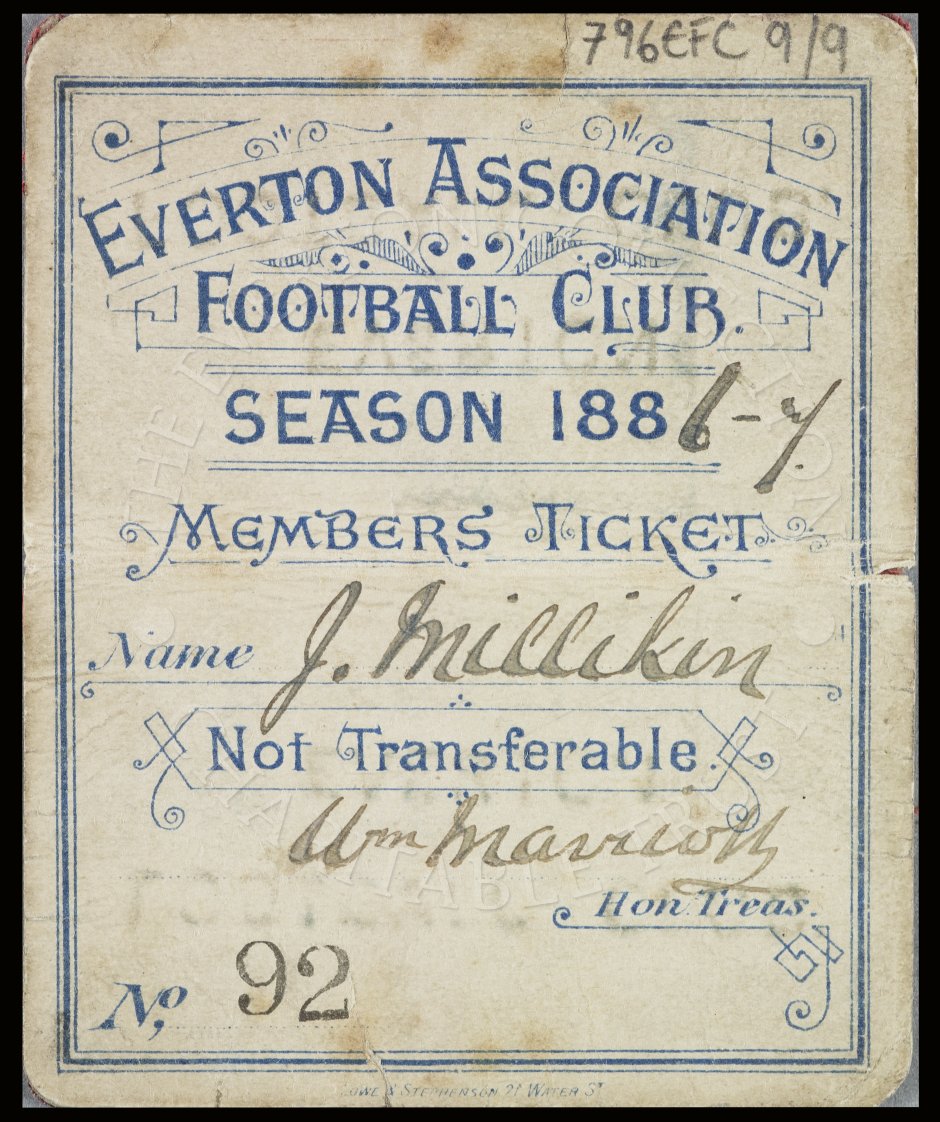 796EFC 9/9
EVERTON ASSOCIATION
FOOTBALL CLUB.
SEASON 1886-7
MEMBERS TICKET
Name J. Millikin
Not Transferable.
Wm Marriott
Hon Treas.
No, 92
LOWE & STEPHENSON 21 WATER ST